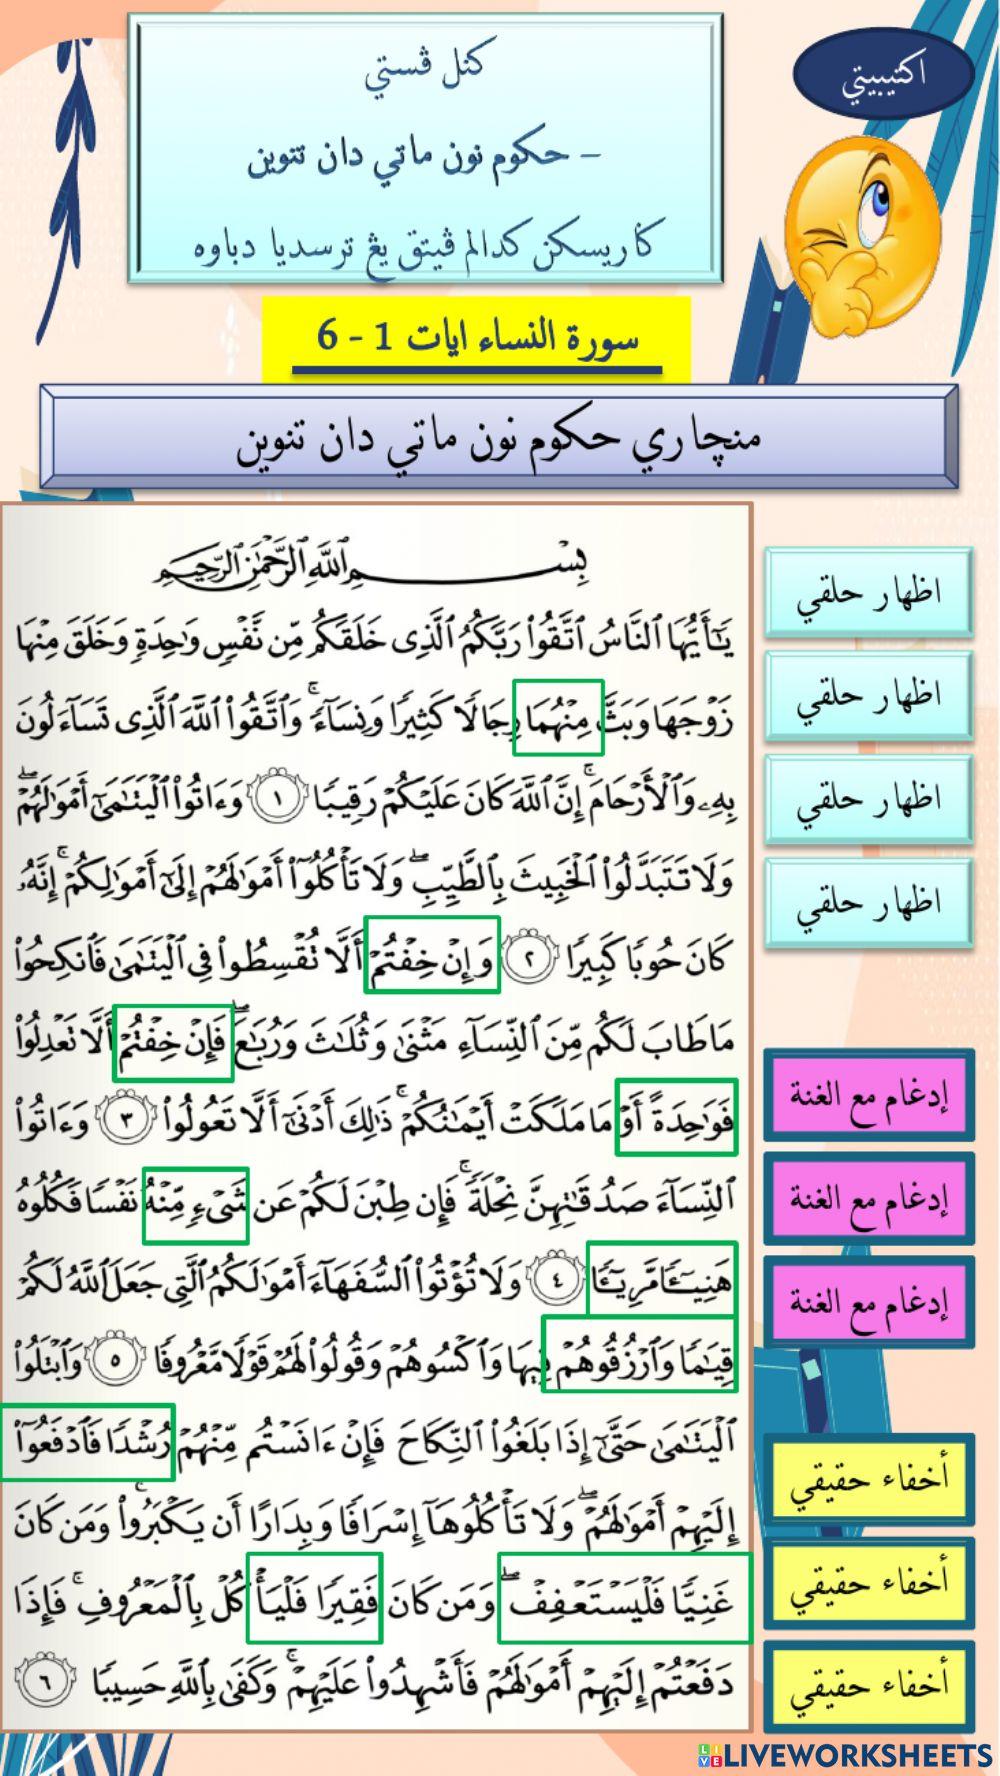 اكتيبيتي
كنل ڤستي
– حكوم نون ماتي دان تنوين
ݢاريسكن كدالم ڤيتق يڠ ترسديا دباوه
سورة النساء ايات 1 - 6
منچاري حكوم نون ماتي دان تنوين
بِسْمِ ٱللَّهِ ٱلرَّحْمَٰنِ ٱلرَّحِيمِ
يَٰٓأَيُّهَا ٱلنَّاسُ ٱتَّقُوا۟ رَبَّكُمُ ٱلَّذِى خَلَقَكُم مِّن نَّفْسٍ وَٰحِدَةٍ وَخَلَقَ مِنْهَا
زَوْجَهَا وَبَثَّ مِنْهُمَا رِجَالًا كَثِيرًا وَنِسَآءً ۚ وَٱتَّقُوا۟ ٱللَّهَ ٱلَّذِى تَسَآءَلُونَ
بِهِۦ وَٱلْأَرْحَامَ ۚ إِنَّ ٱللَّهَ كَانَ عَلَيْكُمْ رَقِيبًا ١ وَءَاتُوا۟ ٱلْيَتَٰمَىٰٓ أَمْوَٰلَهُمْ ۖ
وَلَا تَتَبَدَّلُوا۟ ٱلْخَبِيثَ بِٱلطَّيِّبِ ۖ وَلَا تَأْكُلُوٓا۟ أَمْوَٰلَهُمْ إِلَىٰٓ أَمْوَٰلِكُمْ ۚ إِنَّهُۥ
كَانَ حُوبًا كَبِيرًا ٢ وَإِنْ خِفْتُمْ أَلَّا تُقْسِطُوا۟ فِى ٱلْيَتَٰمَىٰ فَٱنكِحُوا۟
مَا طَابَ لَكُم مِّنَ ٱلنِّسَآءِ مَثْنَىٰ وَثُلَٰثَ وَرُبَٰعَ ۖ فَإِنْ خِفْتُمْ أَلَّا تَعْدِلُوا۟
فَوَٰحِدَةً أَوْ مَا مَلَكَتْ أَيْمَٰنُكُمْ ۚ ذَٰلِكَ أَدْنَىٰٓ أَلَّا تَعُولُوا۟ ٣ وَءَاتُوا۟
ٱلنِّسَآءَ صَدُقَٰتِهِنَّ نِحْلَةً ۚ فَإِن طِبْنَ لَكُمْ عَن شَىْءٍ مِّنْهُ نَفْسًا فَكُلُوهُ
هَنِيٓـًٔا مَّرِيٓـًٔا ٤ وَلَا تُؤْتُوا۟ ٱلسُّفَهَآءَ أَمْوَٰلَكُمُ ٱلَّتِى جَعَلَ ٱللَّهُ لَكُمْ
قِيَٰمًا وَٱرْزُقُوهُمْ فِيهَا وَٱكْسُوهُمْ وَقُولُوا۟ لَهُمْ قَوْلًا مَّعْرُوفًا ٥ وَٱبْتَلُوا۟
ٱلْيَتَٰمَىٰ حَتَّىٰٓ إِذَا بَلَغُوا۟ ٱلنِّكَاحَ فَإِنْ ءَانَسْتُم مِّنْهُمْ رُشْدًا فَٱدْفَعُوٓا۟
إِلَيْهِمْ أَمْوَٰلَهُمْ ۖ وَلَا تَأْكُلُوهَآ إِسْرَافًا وَبِدَارًا أَن يَكْبَرُوا۟ ۚ وَمَن كَانَ
غَنِيًّا فَلْيَسْتَعْفِفْ ۖ وَمَن كَانَ فَقِيرًا فَلْيَأْكُلْ بِٱلْمَعْرُوفِ ۚ فَإِذَا
دَفَعْتُمْ إِلَيْهِمْ أَمْوَٰلَهُمْ فَأَشْهِدُوا۟ عَلَيْهِمْ ۚ وَكَفَىٰ بِٱللَّهِ حَسِيبًا ٦
اظهار حلقي
اظهار حلقي
اظهار حلقي
اظهار حلقي
إدغام مع الغنة
إدغام مع الغنة
إدغام مع الغنة
أخفاء حقيقي
أخفاء حقيقي
أخفاء حقيقي
LIVEWORKSHEETS